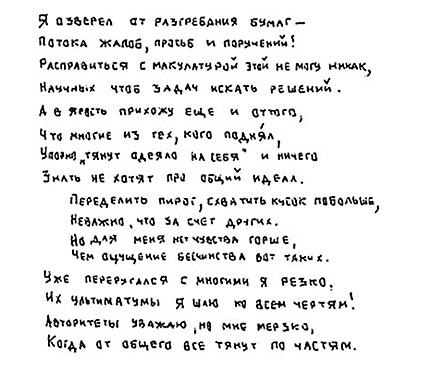 Я озверел от разгребания бумаг —
Потока жалоб, просьб и поручений!
Расправиться с макулатурой этой не могу никак,
Научных чтоб задач искать решений.
А в ярость прихожу еще и оттого,
Что многие из тех, кого поднял,
Упорно „тянут одеяло на себя" и ничего
Знать не хотят про общий идеал.
Переделить пирог, схватить кусок побольше,
Неважно, что за счет других.
Но для меня нет чувства горше,
Чем ощущение бесчинства вот таких.
Уже переругался с многими я резко.
Их ультиматумы я шлю ко всем чертям!
Авторитеты уважаю, но мне мерзко,
Когда от общего все тянут по частям.